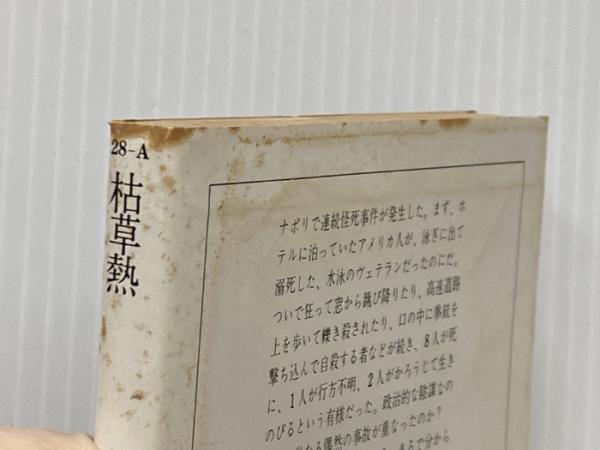 28-A
枯草熱
ナポリで連続怪死事件が発生した。まず、ホ
テルに泊っていたアメリカ人が、泳ぎに出て
溺死した、水泳のヴェテランだったのにだ。
ついで狂って窓から跳び降りたり、高速道路
上を歩いて轢き殺されたり、口の中に拳銃を
撃ち込んで自殺する者などが続き、8人が死
に、1人が行方不明、2人がかろうじて生き
のびるという有様だった。政治的な陰謀なの
なる偶然の事故が重なったのか?
まるで分から